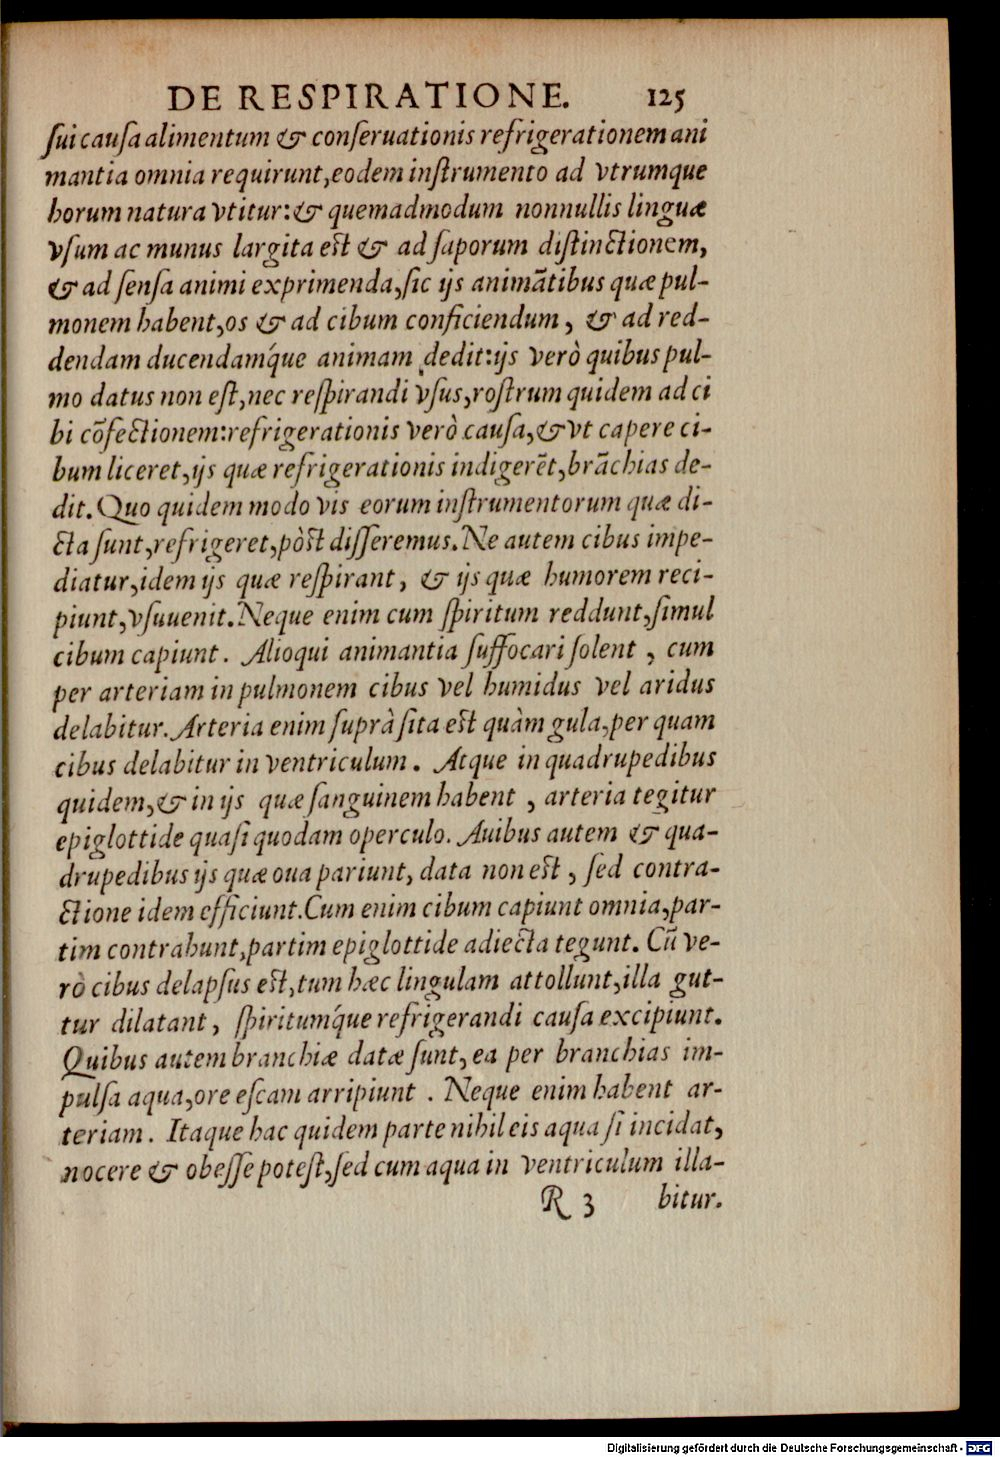 DE RESPIRATIONE. 125
ſui cauſa alimentum & conſeruationis refrigerationem ani
mantia omnia requirunt, eodem inſtrumento ad vtrumque
horum natura vtitur: & quemadmodum nonnullis linguæ
vſum ac munus largita eſt & ad ſaporum diſtinctionem,
& ad ſenſa animi exprimenda, ſic ijs animãtibus quæ pul-
monem habent, os & ad cibum conficiendum, & ad red-
dendam ducendamq́ue animam dedit: ijs verò quibus pul-
mo datus non eſt, nec reſpirandi vſus, roſtrum quidem ad ci
bi cõfectionem: refrigerationis verò cauſa, & vt capere ci-
bum liceret, ijs quæ refrigerationis indigerẽt, brãchias de-
dit. Quo quidem modo vis eorum inſtrumentorum quæ di-
cta ſunt, refrigeret, pòſt differemus. Ne autem cibus impe-
diatur, idem ijs quæ reſpirant, & ijs quæ humorem reci-
piunt, vſuuenit. Neque enim cum ſpiritum reddunt, ſimul
cibum capiunt. Alioqui animantia ſuffocari ſolent, cum
per arteriam in pulmonem cibus vel humidus vel aridus
delabitur. Arteria enim ſuprà ſita eſt quàm gula, per quam
cibus delabitur in ventriculum. Atque in quadrupedibus
quidem, & in ijs quæ ſanguinem habent, arteria tegitur
epiglottide quaſi quodam operculo. Auibus autem & qua-
drupedibus ijs quæ oua pariunt, data non eſt, ſed contra-
ctione idem efficiunt. Cum enim cibum capiunt omnia, par-
tim contrahunt, partim epiglottide adiecta tegunt. Cũ ve-
rò cibus delapſus eſt, tum hæc lingulam attollunt, illa gut-
tur dilatant, ſpiritumq́ue refrigerandi cauſa excipiunt.
Quibus autem branchiæ datæ ſunt, ea per branchias im-
pulſa aqua, ore eſcam arripiunt. Neque enim habent ar-
teriam. Itaque hac quidem parte nihil eis aqua ſi incidat,
nocere & obeſſe poteſt, ſed cum aqua in ventriculum illa-
R 3 bitur.
Digitalisierung gefördert durch die Deutsche Forschungsgemeinschaft - DFG